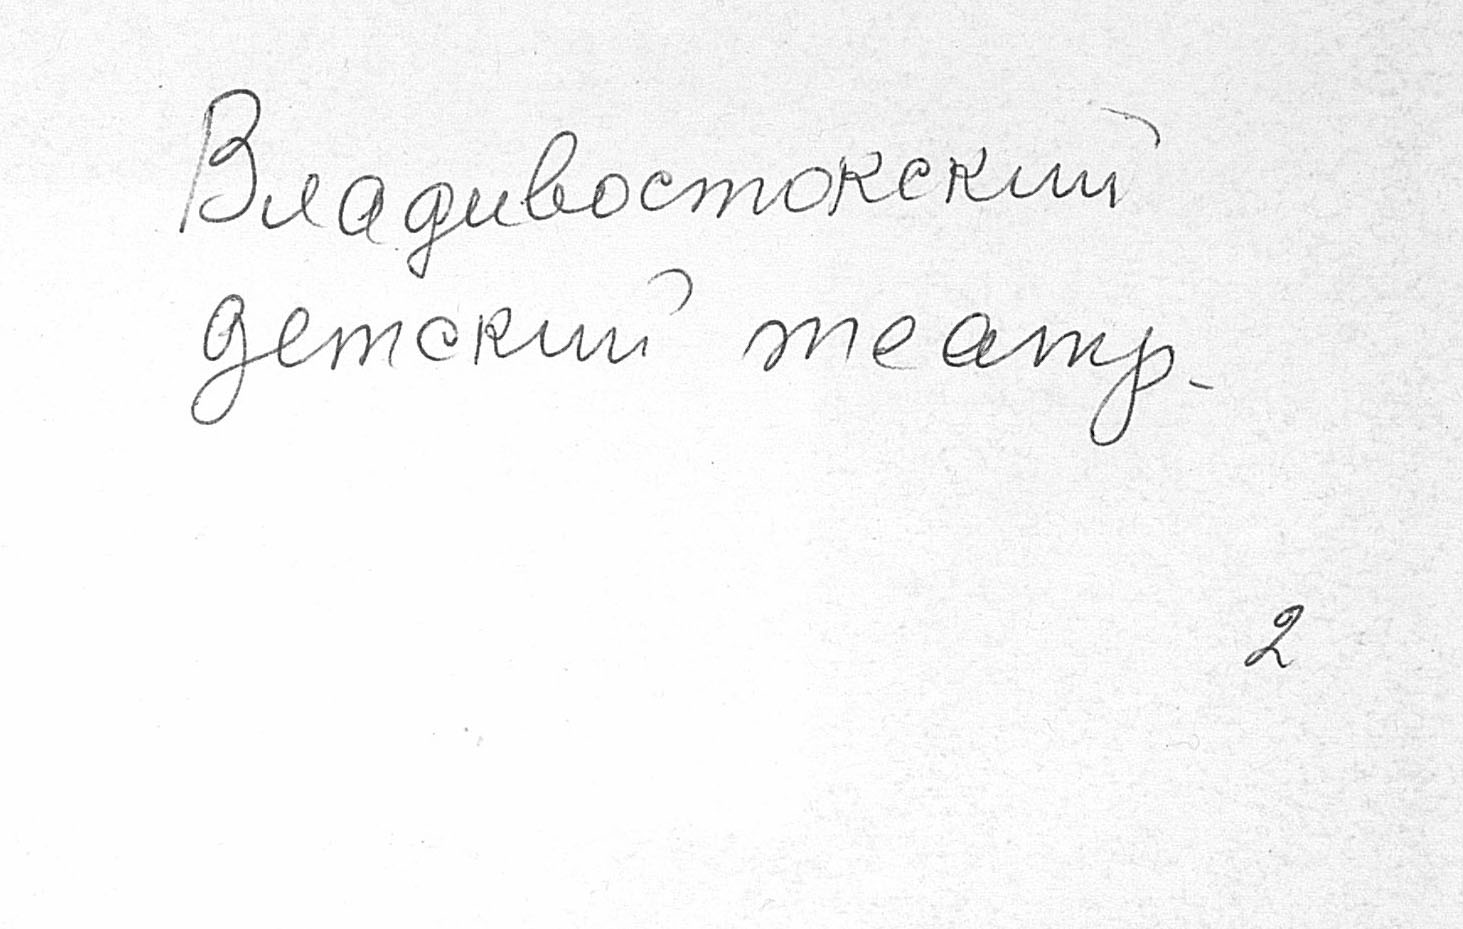 Владивостокский
детский театр.
2